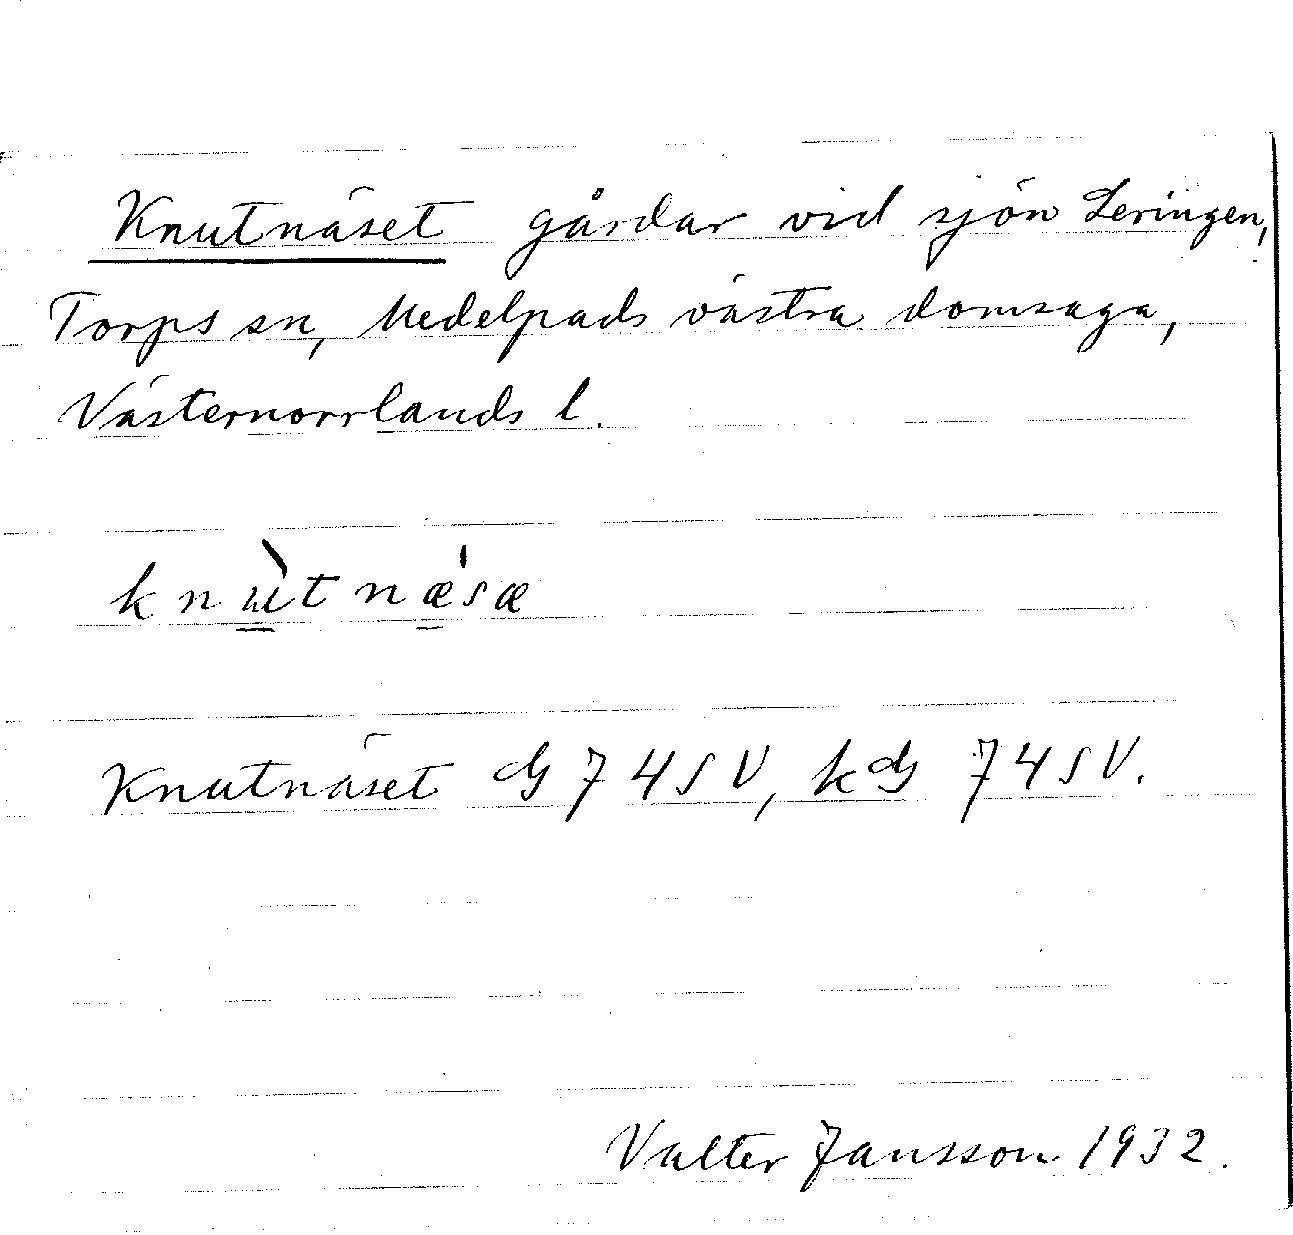 Knutnäset gårdar vid sjön Leringen,
Torps sn, Medelpads västra domsaga,
Västernorrlands l.
knùtnæ̍sæ
Knutnäset G 74 SV, kG 74 SV.
Valter Jansson 1932.